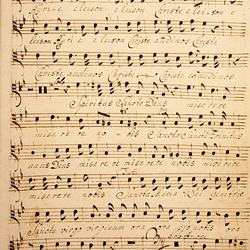 Kyrie eleison Christe eleison e
leison Kyrie eleison Christe audi nos Christe
Christe audi nos Christe exaudi nos
Spiritus Sancte Deus mise re re
mise re re no bis Sancta Trinitas
unus Deus mise re re mise re re nobis mise re re
mise re re nobis Sancta Maria Dei
Sancta virgo virginum ora ora pro nobis ora